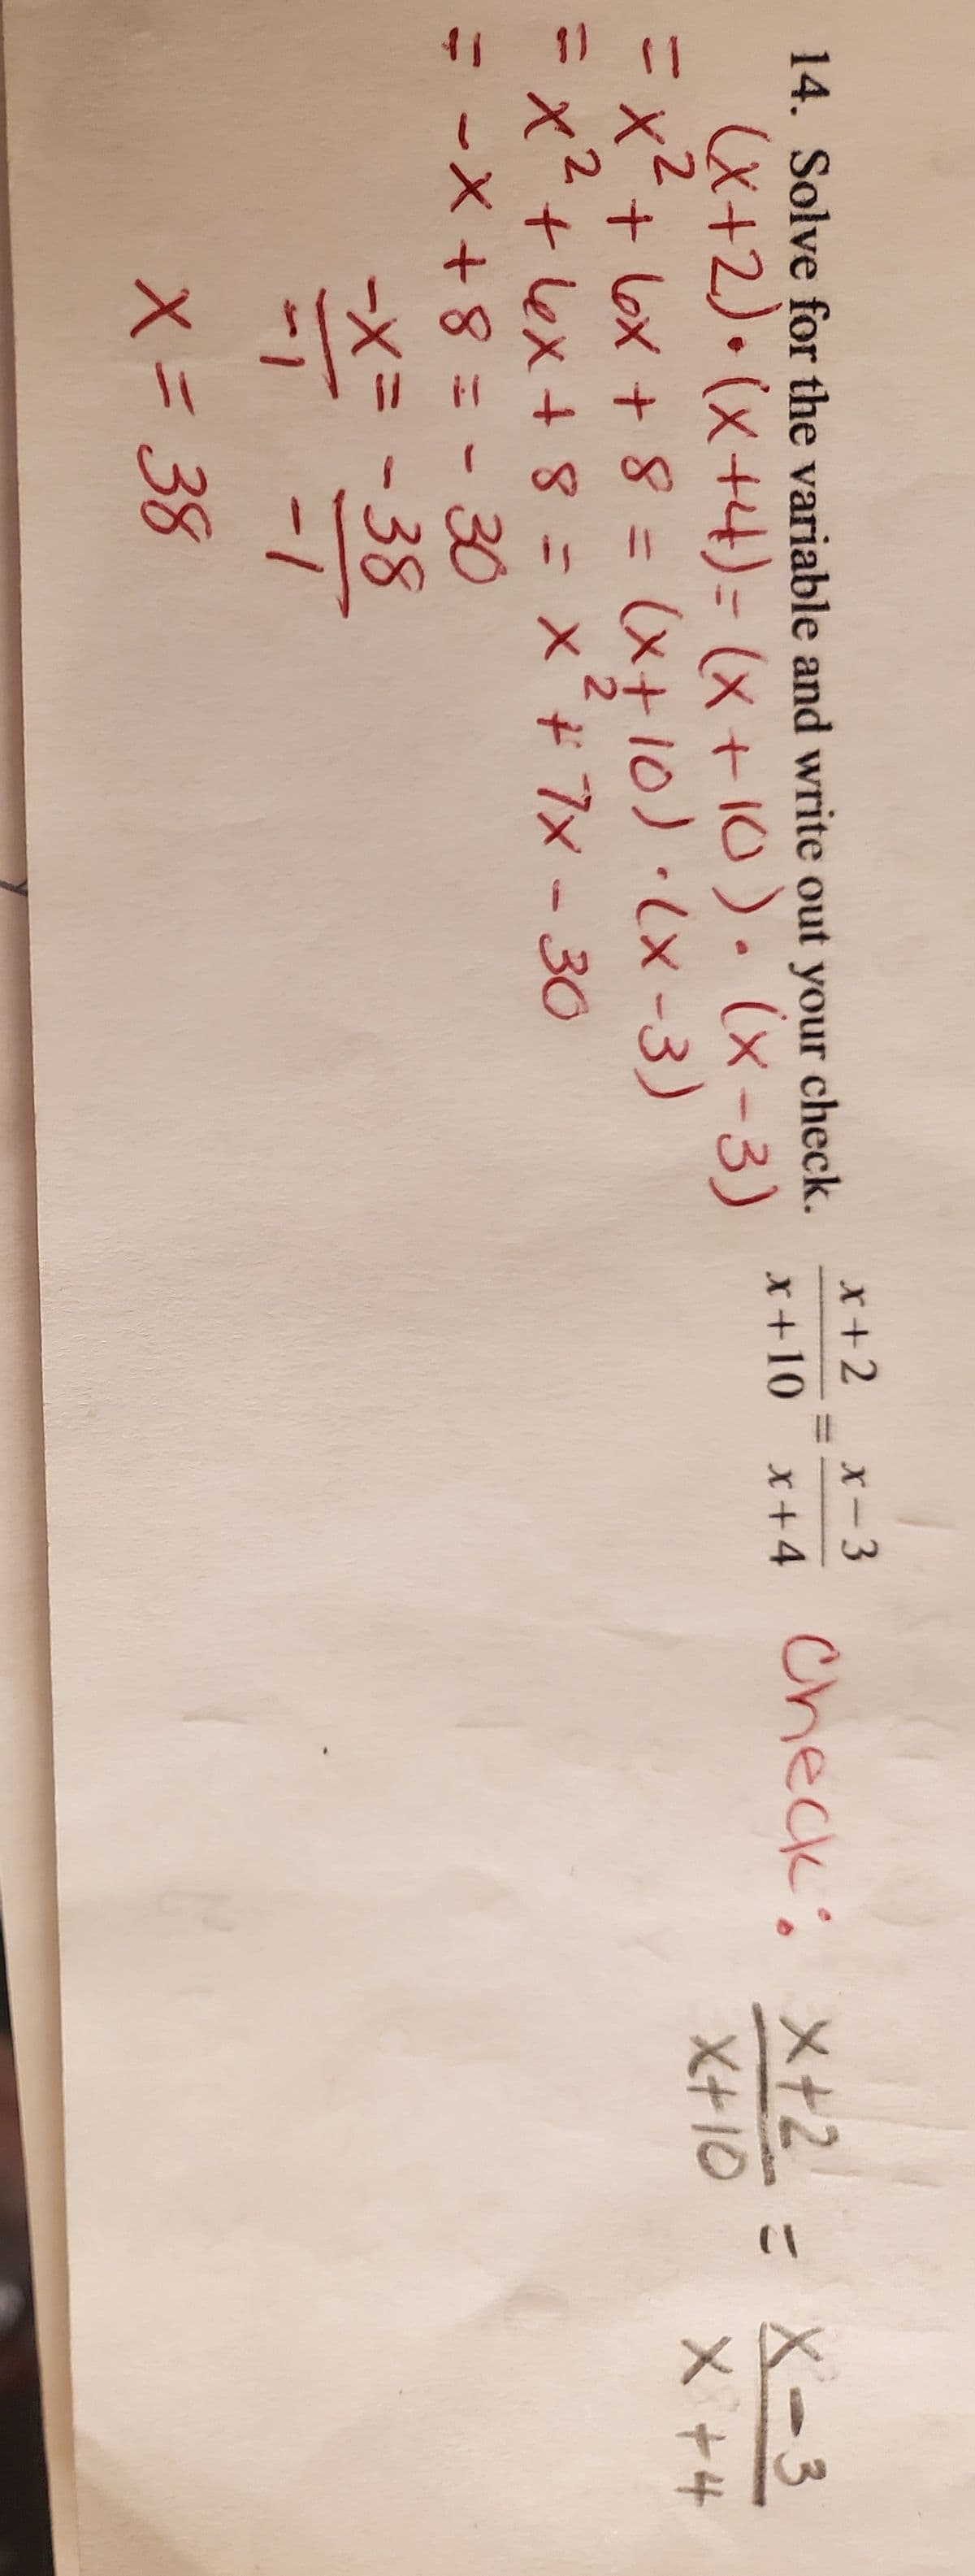 14. Solve for the variable and write out your check. x+2/x+10 = x−3/x+4 Check: x+2/x+10 = x-3/x+4
(x+2)·(x+4)=(x+10)·(x-3)
= x² + 6x + 8 = (x+10)·(x-3)
= x² + 6x + 8 = x² + 7x - 30
= -x + 8 = -30
-x = -38
-1 -1
x = 38